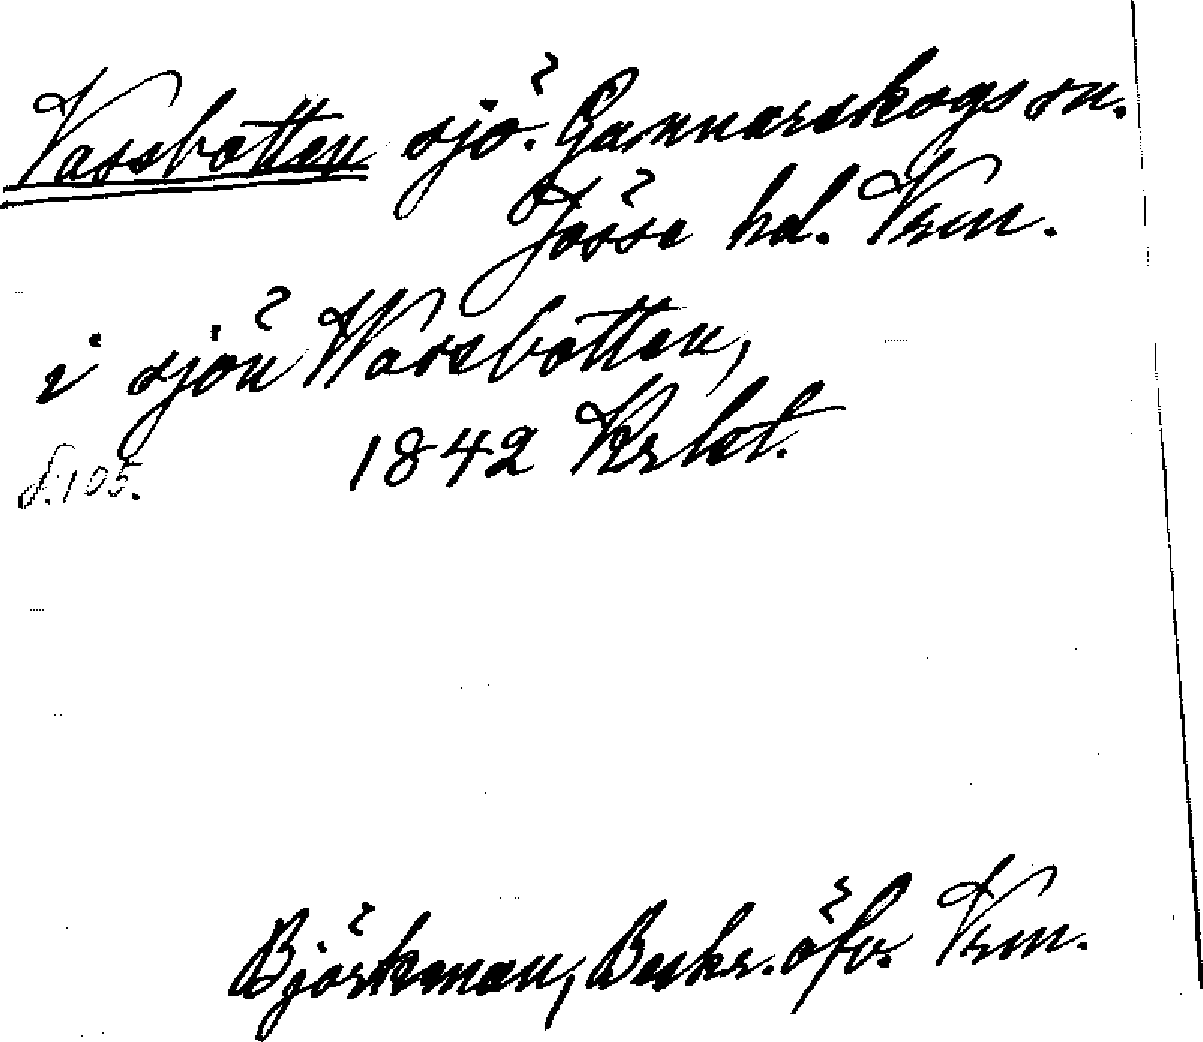 Vassbotten sjö. Gunnarskogs sn.
Jösse hd. Vrm.
i sjön Wassbotten,
1842
s. 105.
Björkman, Beskr. öfv. Vrm.